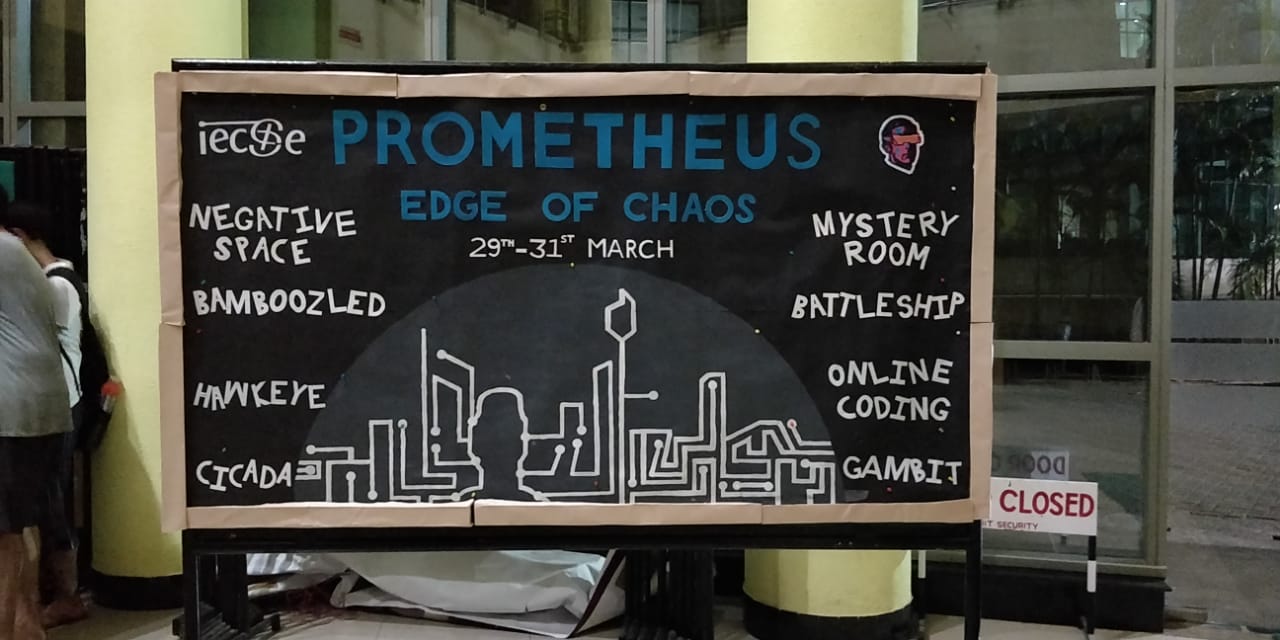 iecse
PROMETHEUS
EDGE OF CHAOS
29TH-31ST MARCH
NEGATIVE
SPACE
BAMBOOZLED
HAWKEYE
CICADA
MYSTERY
ROOM
BATTLESHIP
ONLINE
CODING
GAMBIT
DOOR
CLOSED
SECURITY